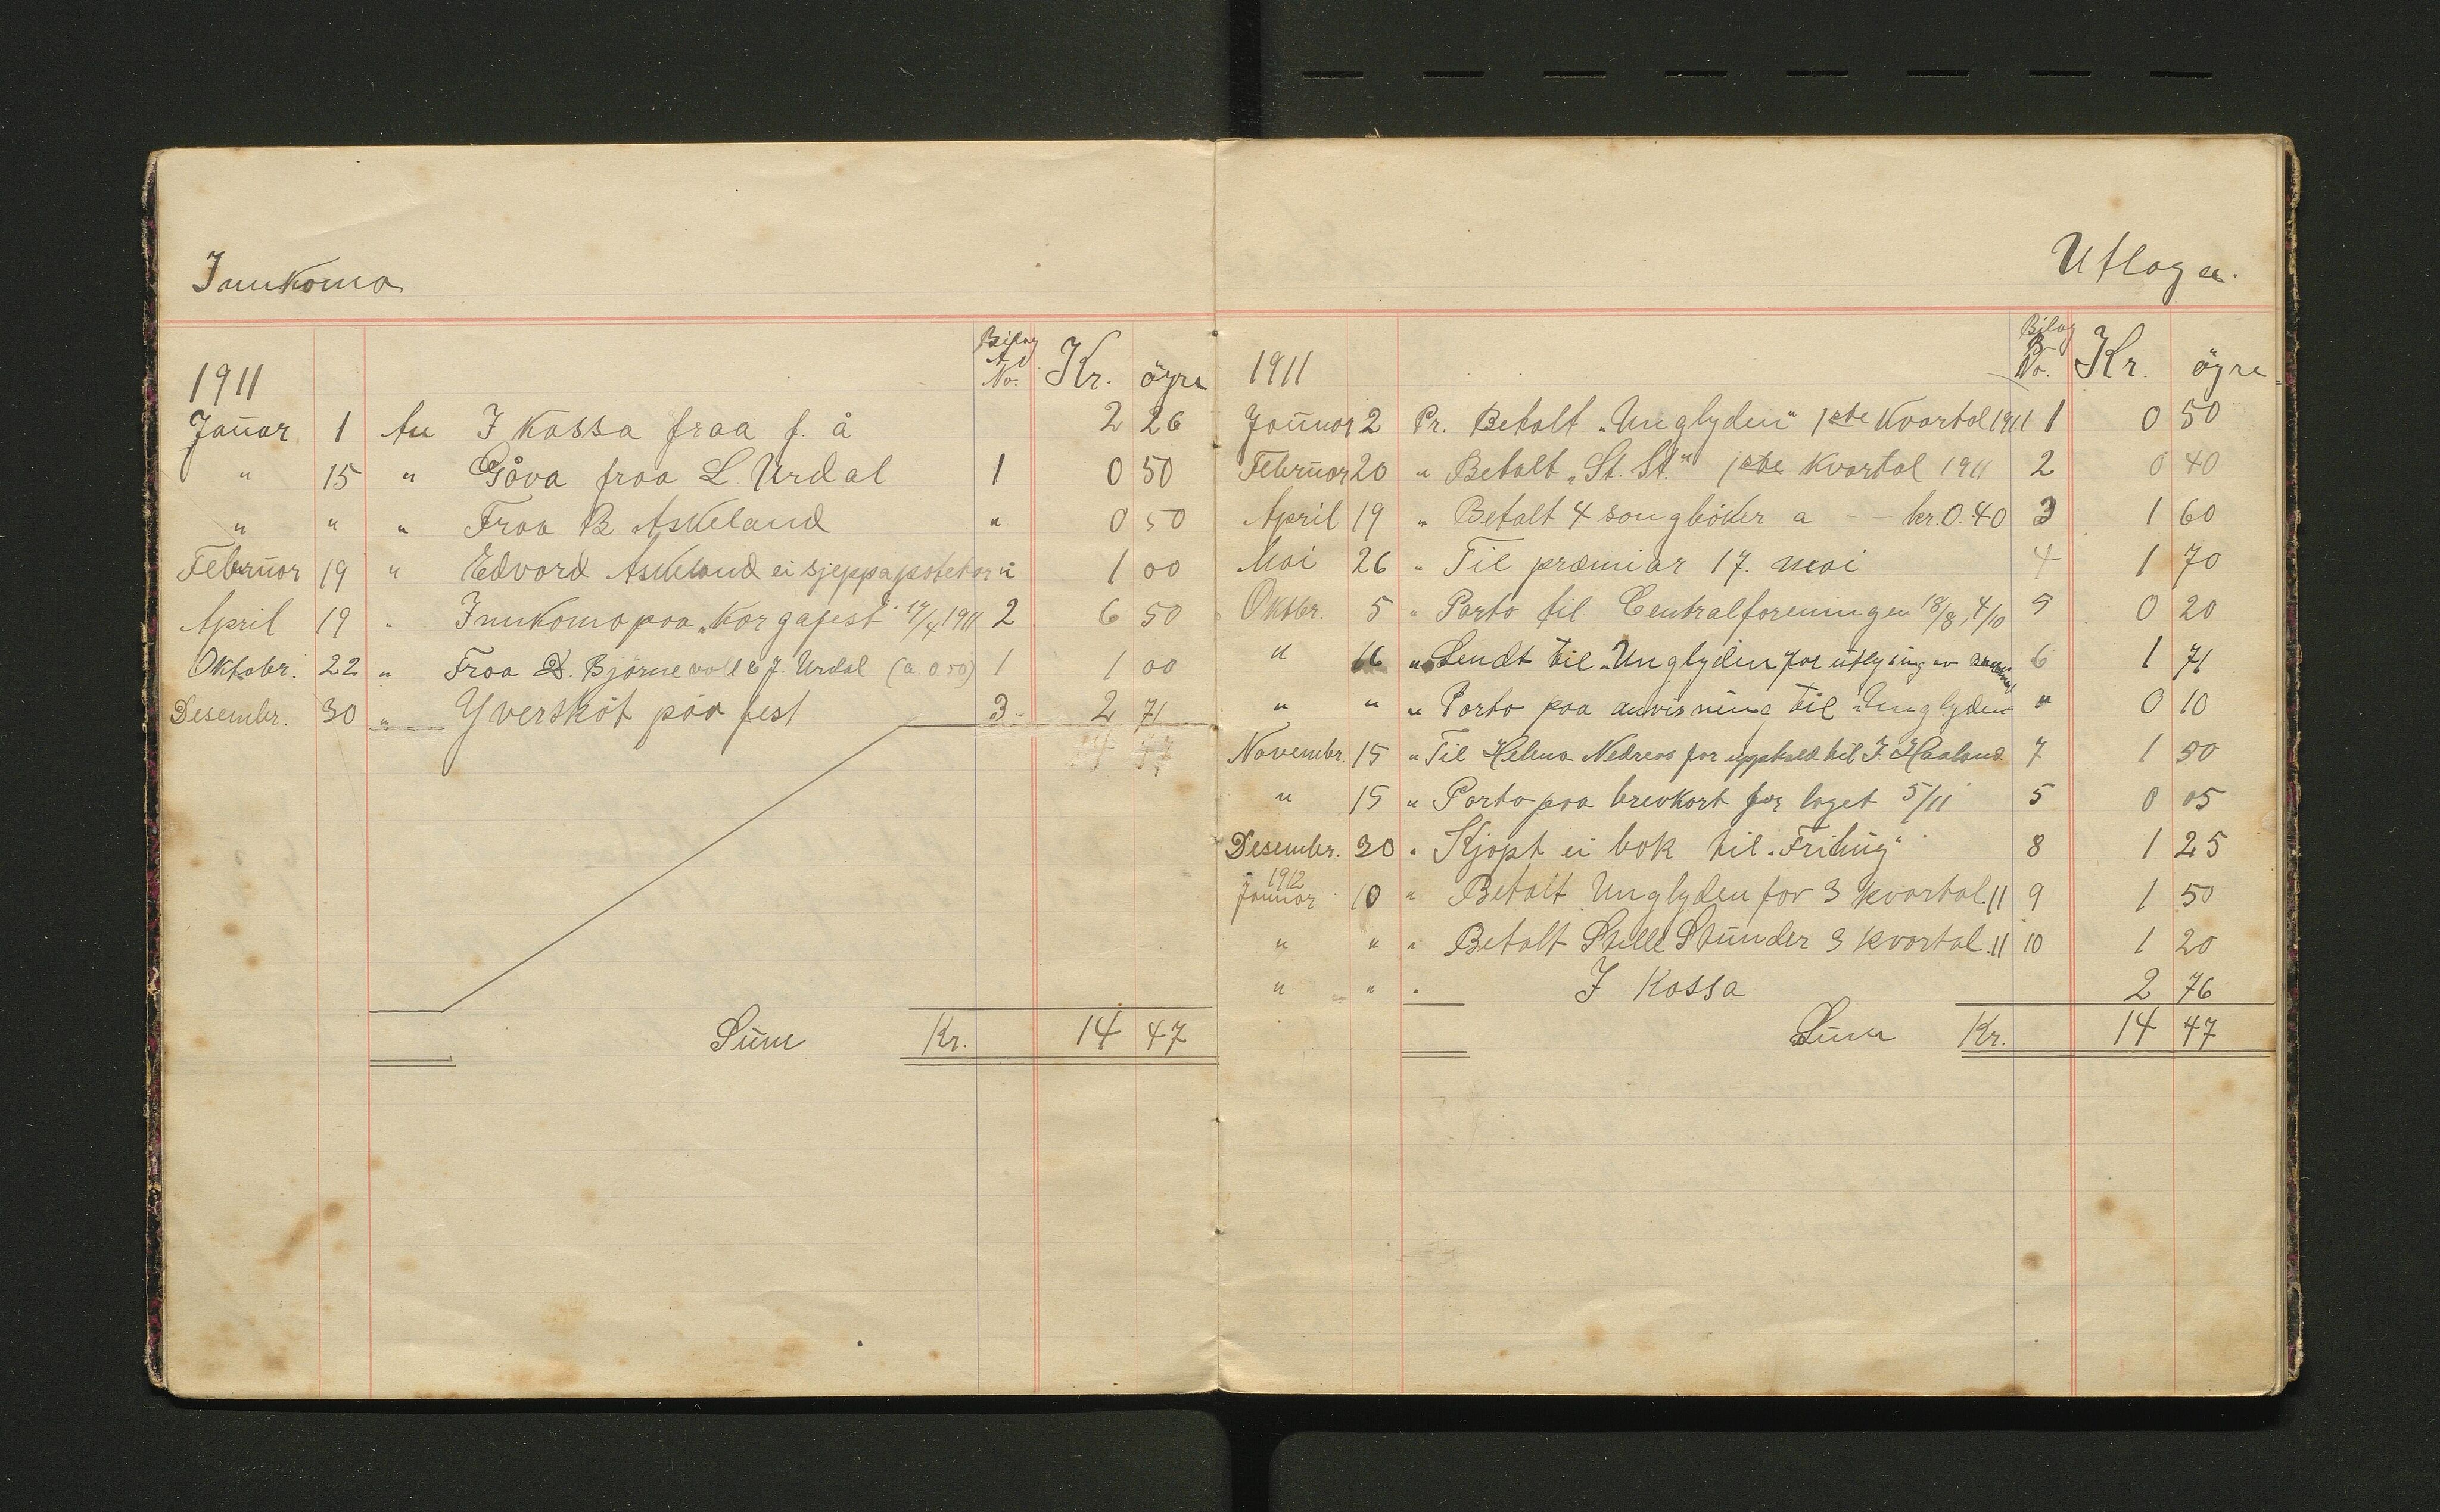 Innkoma
Bilag
A
No. Kr. öyre
1911
Januar 1 An I kassa fraa f. å 2 26
" 15 " Gåva fraa L Urdal 1 0 50
" " " Fraa B. Askeland " 0 50
Februar 19 " Edvard Askeland ei sjeppa poteter " 1 00
April 19 " Innkoma paa "Korgafest" 17/4 1911 2 6 50
Oktobr. 22 " Fraa B. Björnevoll & J. Urdal (a. 0.50) 1 1 00
Desembr. 30 " Yversköt paa fest 3 2 71
14 47
Sum Kr. 14 47
Utlaga.
Bilag
B
No. Kr. öyre
1911
Januar 2 Pr. Betalt "Unglyden" 1ste Kvartal 1911 1 0 50
Februar 20 " Betalt "St. St." 1ste Kvartal 1911 2 0 40
April 19 " Betalt 4 songböker a -- kr. 0.40 3 1 60
Mai 26 " Til præmiar 17. mai 4 1 70
Oktbr. 5 " Porto til Centralforeningen 18/8, 4/10 5 0 20
" 16 " Sendt til "Unglyden for utlysing av 6 1 71
" " " Porto paa anvisning til "Unglyden " 0 10
Novembr. 15 " Til Helena Nedreos for upphald til J. Haaland 7 1 50
" 15 " Porto paa brevkort for laget 5/11 5 0 05
Desembr. 30 " Kjøpt ei bok til "Frihug" 8 1 25
1912
Januar 10 " Betalt Unglyden for 3 kvartal. 11 9 1 50
" " " Betalt Stille Stunder 3 kvartal. 11 10 1 20
" " " I Kassa 2 76
Sum Kr. 14 47